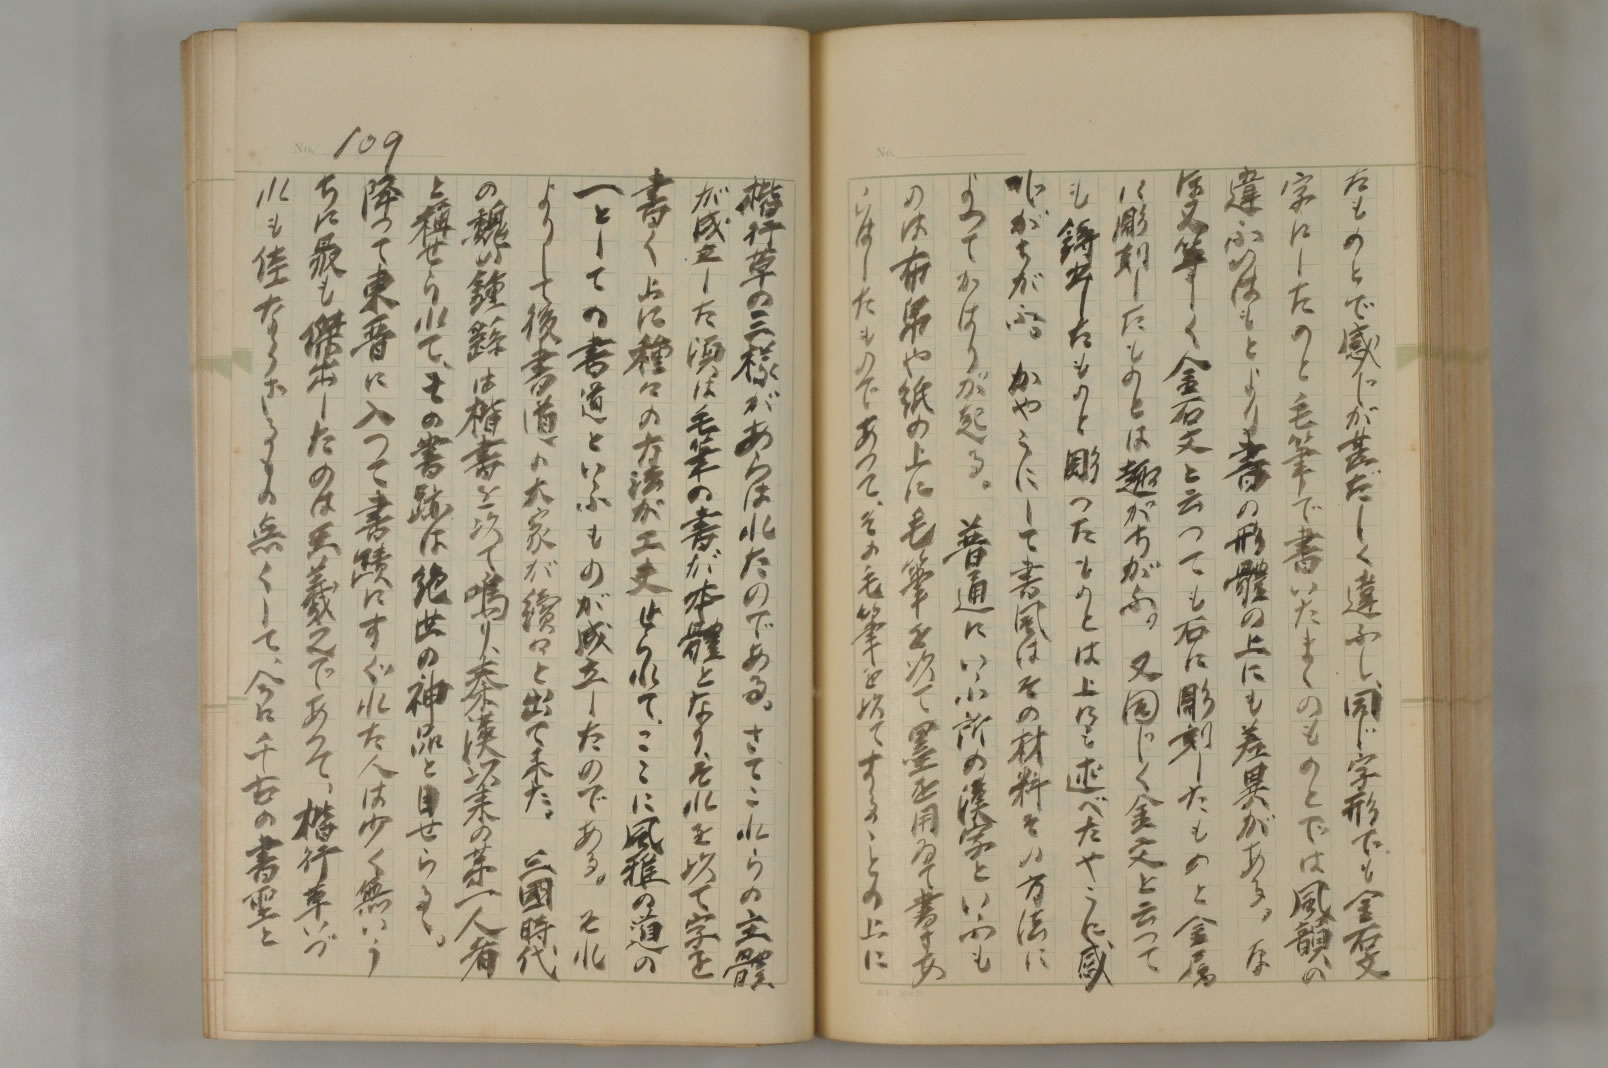 たものとで感じが甚だしく違ふし、同じ字形でも金石文
字にしたのと毛筆で書いたまくのものとでは風韻の
違ふのはもとより書の形體の上にも差異がある。な
ほ又等しく金石文と云つても石に彫刻したものと金属
に彫刻したものとは趣がちがふ。又同じく金文と云つて
も鋳出したものと彫つたものとは上にも述べたやうに感
じがちがふ。かやうにして書風はその材料その方法に
よつてかはりが起る。普通にいふ所の漢字といふも
のは布帛や紙の上に毛筆を以て墨を用ゐて書きあ
らはしたものであつて、その毛筆を以てすることの上に
No.
No. 109
楷行草の三様があらは れたのである。さてこれらの主體
が成立した頃は毛筆の書が本體となり、それを以て字を
書く上に種々の方法が工夫せられて、ここに風雅の道の
一としての書道といふものが成立したのである。それ
よりして後書道の大家が續々と出て来た。三國時代
の魏の鍾繇は楷書を以て鳴り、秦漢以来の第一人者
と稱せられて、その書跡は絶世の神品と目せらる。
降つて東晋に入つて書蹟にすぐれた人は少く無いう
ちに最も傑出したのは王羲之であつて、楷行草いづ
れも佳ならざるもの無くして、今に千古の書聖と